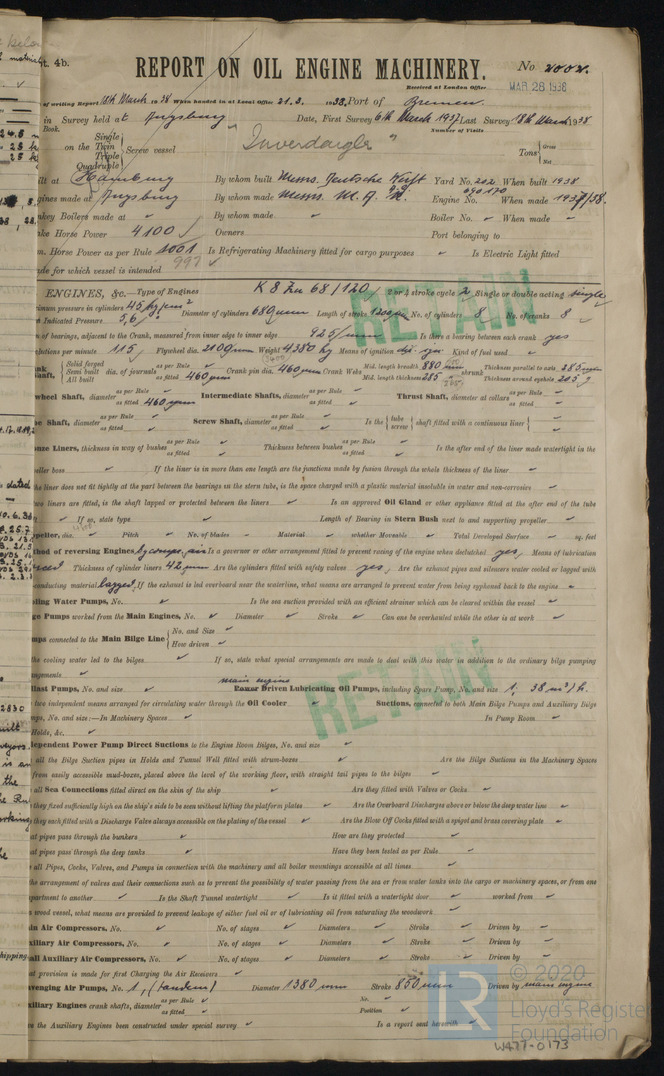 4b.
REPORT ON OIL ENGINE MACHINERY.
No 2002.
Received at London Office MAR 26 1938
of writing Report 18th March 1938 When handed in at Local Office 21.3. 1938. Port of Bremen
in Survey held at Augsburg Date, First Survey 6th March 1937 Last Survey 18th March 1938
Book. Number of Visits
on the Single Twin Triple Quadruple Screw vessel "Inverdargle" Tons Gross Net
Built at Hamburg By whom built Messrs. Deutsche Werft Yard No. 202 When built 1938
Engines made at Augsburg By whom made Messrs. M. A. N. Engine No. 690170 When made 1937/38.
Donkey Boilers made at ✓ By whom made ✓ Boiler No. ✓ When made ✓
Brake Horse Power 4100 Owners Port belonging to
Nom. Horse Power as per Rule 1001 997 Is Refrigerating Machinery fitted for cargo purposes ✓ Is Electric Light fitted
Trade for which vessel is intended
ENGINES, &c. Type of Engines K 8 Zu 68/120 2 or 4 stroke cycle 2 Single or double acting single
Maximum pressure in cylinders 45 kg/cm² Diameter of cylinders 680 mm Length of stroke 1200 mm No. of cylinders 8 No. of cranks 8
Mean Indicated Pressure 5,6
of bearings, adjacent to the Crank, measured from inner edge to inner edge 925 mm Is there a bearing between each crank yes
Revolutions per minute 115 Flywheel dia. 2100 mm Weight 4380 kg Means of ignition Kind of fuel used ✓
Crank Shaft, Solid forged Semi built All built dia. of journals as per Rule as fitted 460 mm Crank pin dia. 460 mm Crank Webs Mid. length breadth 880 mm Mid. length thickness 285 shrunk Thickness parallel to axis 285 mm Thickness around eyehole 205
Flywheel Shaft, diameter as per Rule as fitted 460 mm Intermediate Shafts, diameter as per Rule as fitted Thrust Shaft, diameter at collars as per Rule as fitted
Tube Shaft, diameter as per Rule as fitted Screw Shaft, diameter as per Rule as fitted Is the tube screw shaft fitted with a continuous liner
Bronze Liners, thickness in way of bushes as per Rule as fitted Thickness between bushes as per Rule as fitted Is the after end of the liner made watertight in the
propeller boss If the liner is in more than one length are the junctions made by fusion through the whole thickness of the liner
the liner does not fit tightly at the part between the bearings in the stern tube, is the space charged with a plastic material insoluble in water and non-corrosive
two liners are fitted, is the shaft lapped or protected between the liners Is an approved Oil Gland or other appliance fitted at the after end of the tube
If so, state type Length of Bearing in Stern Bush next to and supporting propeller
Propeller, dia. Pitch No. of blades Material whether Moveable Total Developed Surface sq. feet
Method of reversing Engines by compr. air Is a governor or other arrangement fitted to prevent racing of the engine when declutched yes, Means of lubrication
forced Thickness of cylinder liners 42 mm Are the cylinders fitted with safety valves yes, Are the exhaust pipes and silencers water cooled or lagged with
conducting material lagged, If the exhaust is led overboard near the waterline, what means are arranged to prevent water from being syphoned back to the engine
Cooling Water Pumps, No. Is the sea suction provided with an efficient strainer which can be cleared within the vessel
Bilge Pumps worked from the Main Engines, No. Diameter Stroke Can one be overhauled while the other is at work
Pumps connected to the Main Bilge Line No. and Size How driven
the cooling water led to the bilges If so, state what special arrangements are made to deal with this water in addition to the ordinary bilge pumping
arrangements
Ballast Pumps, No. and size main engine Power Driven Lubricating Oil Pumps, including Spare Pump, No. and size 1, 38 m³/h.
two independent means arranged for circulating water through the Oil Cooler Suctions, connected to both Main Bilge Pumps and Auxiliary Bilge
Pumps, No. and size:—In Machinery Spaces In Pump Room
Holds, &c.
Independent Power Pump Direct Suctions to the Engine Room Bilges, No. and size
all the Bilge Suction pipes in Holds and Tunnel Well fitted with strum-boxes Are the Bilge Suctions in the Machinery Spaces
from easily accessible mud-boxes, placed above the level of the working floor, with straight tail pipes to the bilges
all Sea Connections fitted direct on the skin of the ship Are they fitted with Valves or Cocks
they fixed sufficiently high on the ship's side to be seen without lifting the platform plates Are the Overboard Discharges above or below the deep water line
they each fitted with a Discharge Valve always accessible on the plating of the vessel Are the Blow Off Cocks fitted with a spigot and brass covering plate
What pipes pass through the bunkers How are they protected
What pipes pass through the deep tanks Have they been tested as per Rule
all Pipes, Cocks, Valves, and Pumps in connection with the machinery and all boiler mountings accessible at all times
the arrangement of valves and their connections such as to prevent the possibility of water passing from the sea or from water tanks into the cargo or machinery spaces, or from one
compartment to another Is the Shaft Tunnel watertight Is it fitted with a watertight door worked from
a wood vessel, what means are provided to prevent leakage of either fuel oil or of lubricating oil from saturating the woodwork
Main Air Compressors, No. No. of stages Diameters Stroke Driven by
Auxiliary Air Compressors, No. No. of stages Diameters Stroke Driven by
Small Auxiliary Air Compressors, No. No. of stages Diameters Stroke Driven by
What provision is made for first Charging the Air Receivers
Scavenging Air Pumps, No. 1, (tandem) Diameter 1380 mm Stroke 850 mm Driven by main engine
Auxiliary Engines crank shafts, diameter as per Rule as fitted No. Position
Have the Auxiliary Engines been constructed under special survey Is a report sent herewith
RETAIN
RETAIN
© 2020
LR Lloyd's Register
Foundation
W477-0173